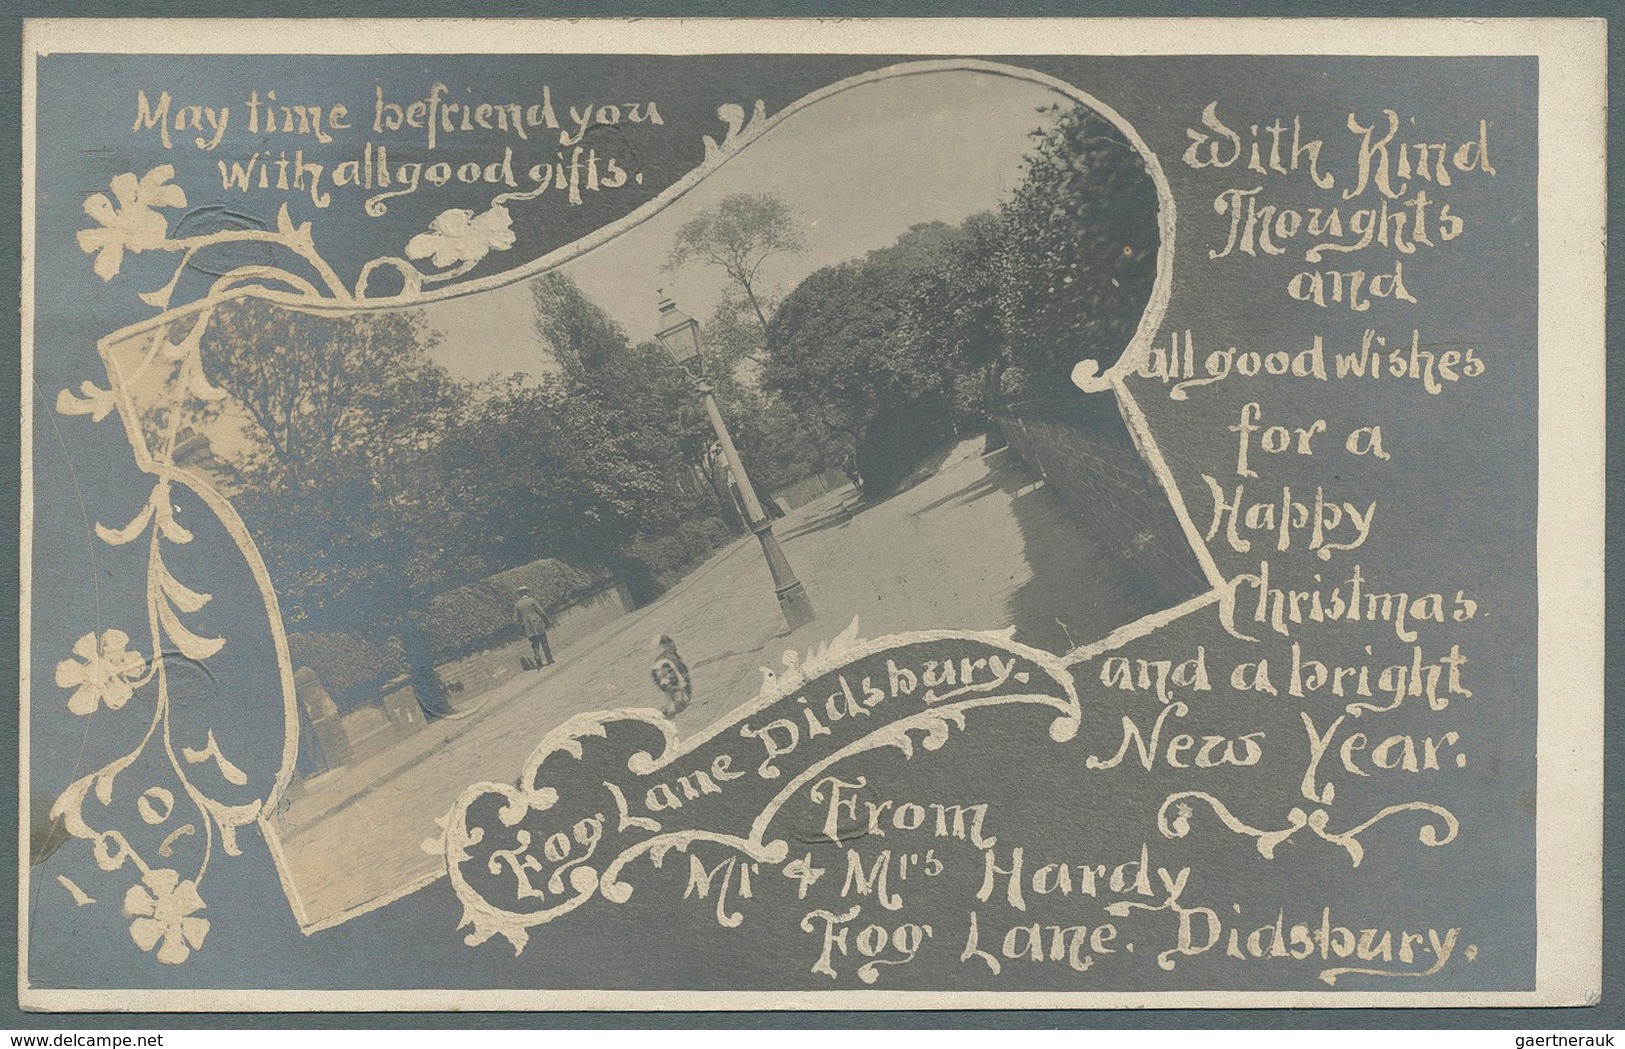 May time befriend you
With all good gifts.
With Kind
Thoughts
and
all good Wishes
for a
Happy
Christmas.
and a bright
New Year.
Fog Lane Didsbury.
From
Mr & Mrs Hardy
Fog Lane. Didsbury.
delcampe.net
gaertnerauk